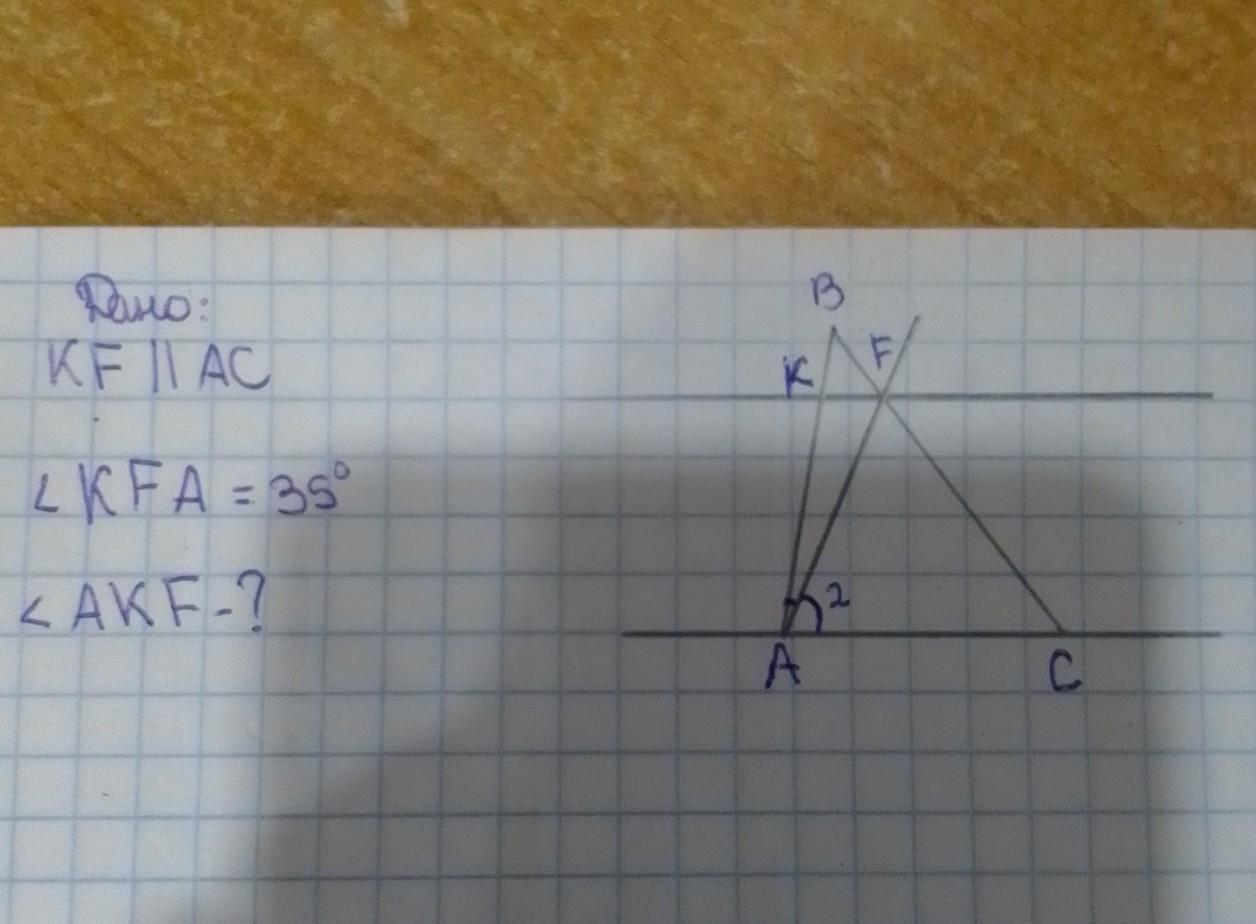 Дано:
KF || AC
∠KFA = 35°
∠AKF - ?
B
K
F
2
A
C